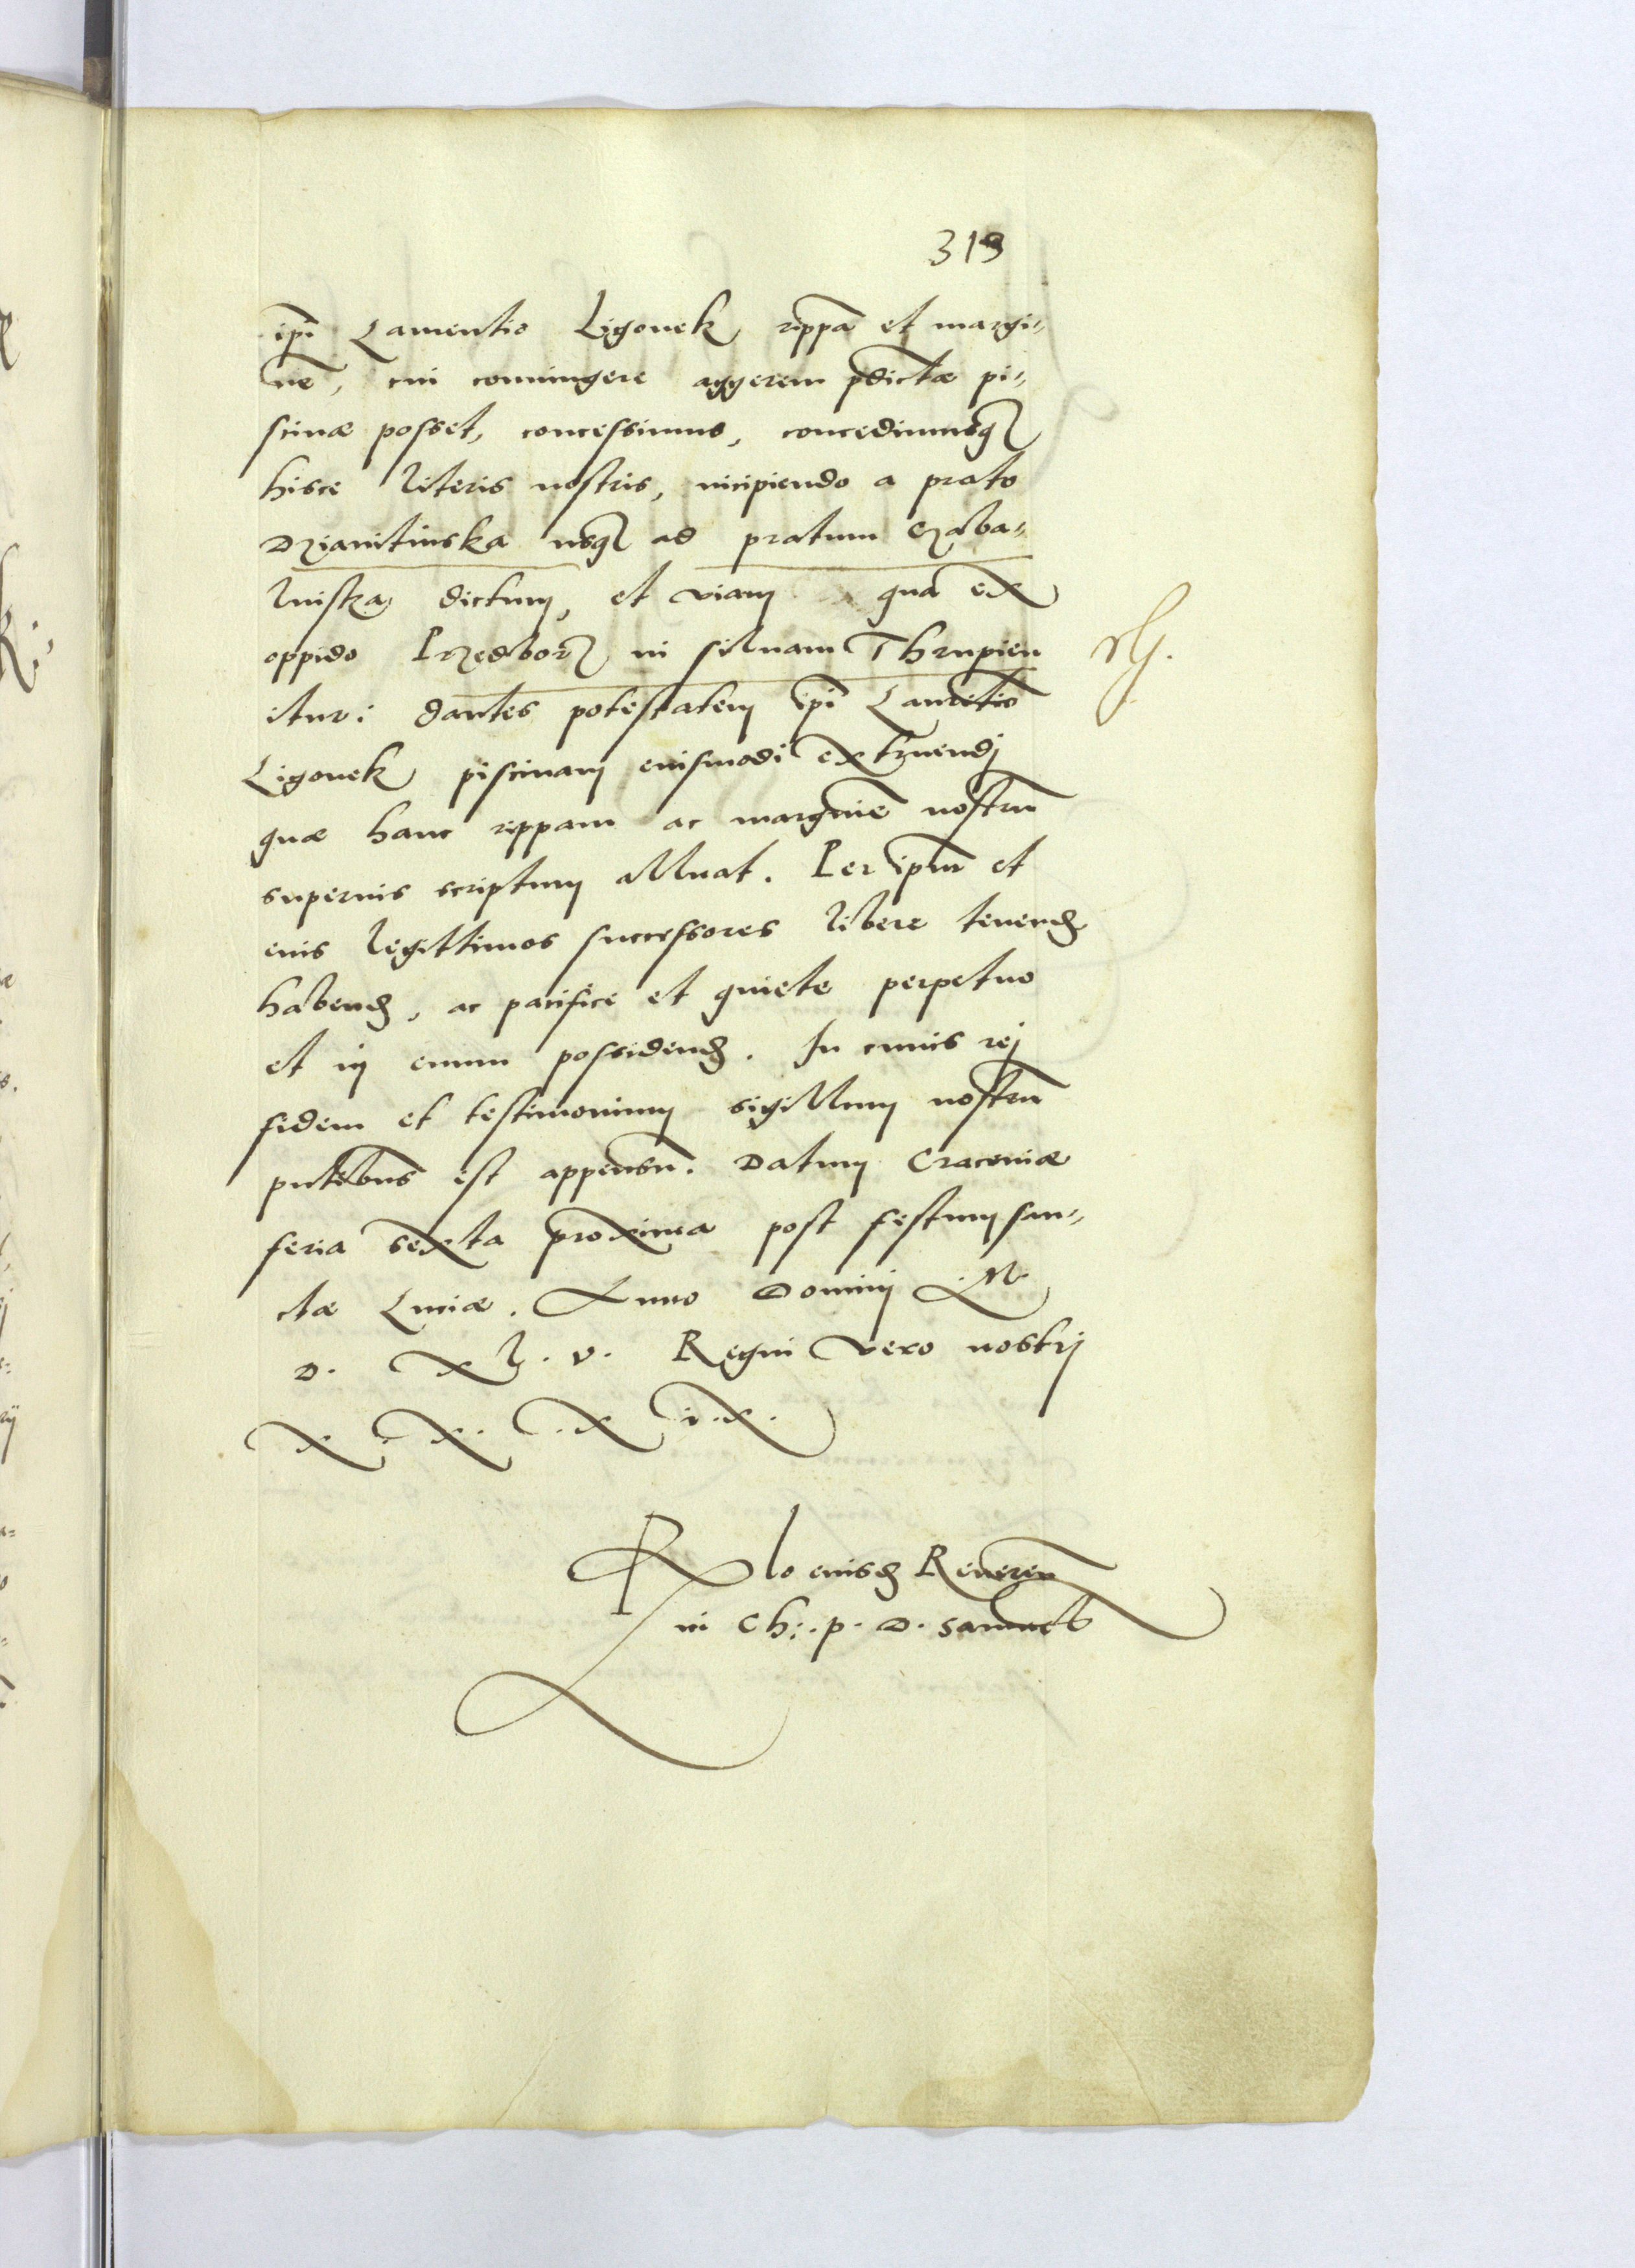 319
ipi̅ Laurentio Ligonek rippā et margi„
nē, cui coniungere aggerem p̄dictæ pi„
scinæ posset, concessimus, concedimusq₃
hisce literis nostris, incipiendo a prato
Dzianitinska usq₃ ad pratum Czaba„
lniska dictum, et viam qua ex
oppido Przedborz in siluam Thrupien
itur: dantes potestatem ipi̅ Laurētio
Ligonek piscinam eiusmodi extruendj
quæ hanc rippam ac marginē nostrū
superius scriptum alluat. Per ipm̄ et
eius legittimos successores libere tenend
habend, ac pacifice et quiete perpetuo
et in euum possidend. In cuius rej
fidem et testimonium sigillum nostrū
pn̄tibus est appensū. Datum Cracouiæ
feria sexta proxima post festum san„
ctæ Luciæ. Anno Dominj .M.
D. XL.V. Regni vero nostrj
X.X.X i.X.
Rlo eiusd Reueren
in Ch:. p. D. Samuel